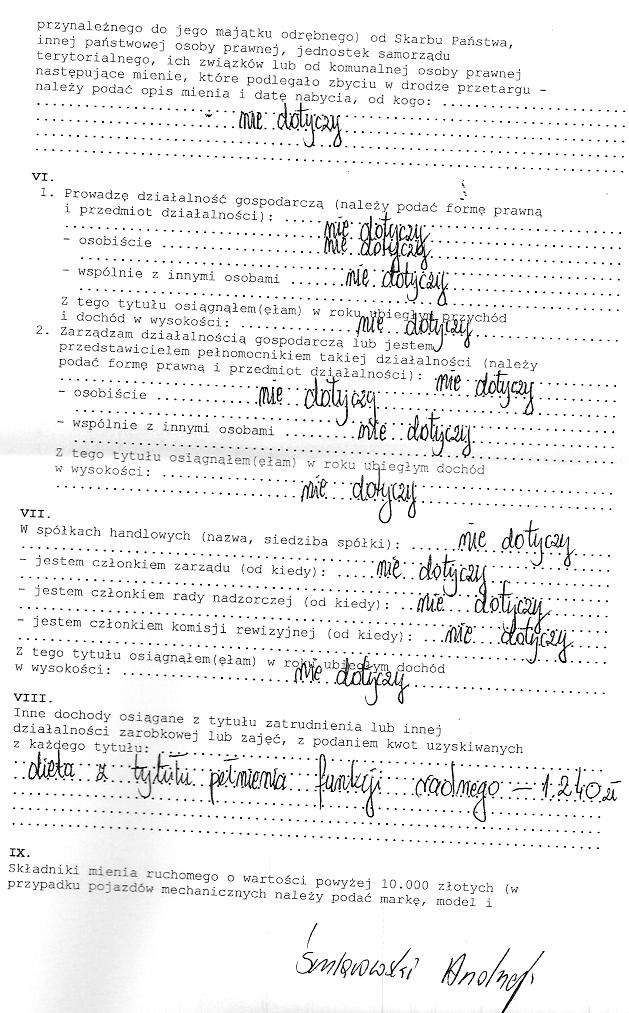 przynależnego do jego majątku odrębnego) od Skarbu Państwa,
innej państwowej osoby prawnej, jednostek samorządu
terytorialnego, ich związków lub od komunalnej osoby prawnej
następujące mienie, które podlegało zbyciu w drodze przetargu –
należy podać opis mienia i datę nabycia, od kogo: ........................
- nie dotyczy
VI.
1. Prowadzę działalność gospodarczą (należy podać formę prawną
i przedmiot działalności): ........................
nie dotyczy
- osobiście ........ nie dotyczy
- wspólnie z innymi osobami ...... nie dotyczy
Z tego tytułu osiągnąłem(ęłam) w roku ubiegłym przychód
i dochód w wysokości: ............ nie dotyczy
2. Zarządzam działalnością gospodarczą lub jestem
przedstawicielem pełnomocnikiem takiej działalności (należy
podać formę prawną i przedmiot działalności): nie dotyczy
- osobiście ........ nie dotyczy
- wspólnie z innymi osobami ........ nie dotyczy
Z tego tytułu osiągnąłem(ęłam) w roku ubiegłym dochód
w wysokości: ........................
nie dotyczy
VII.
W spółkach handlowych (nazwa, siedziba spółki): ..... nie dotyczy
- jestem członkiem zarządu (od kiedy): .... nie dotyczy
- jestem członkiem rady nadzorczej (od kiedy): .. nie dotyczy
- jestem członkiem komisji rewizyjnej (od kiedy): .. nie dotyczy
Z tego tytułu osiągnąłem(ęłam) w roku ubiegłym dochód
w wysokości: ............ nie dotyczy
VIII.
Inne dochody osiągane z tytułu zatrudnienia lub innej
działalności zarobkowej lub zajęć, z podaniem kwot uzyskiwanych
z każdego tytułu: ........................
dieta z tytułu pełnienia funkcji radnego – 1.240 zł
IX.
Składniki mienia ruchomego o wartości powyżej 10.000 złotych (w
przypadku pojazdów mechanicznych należy podać markę, model i
Andrzej